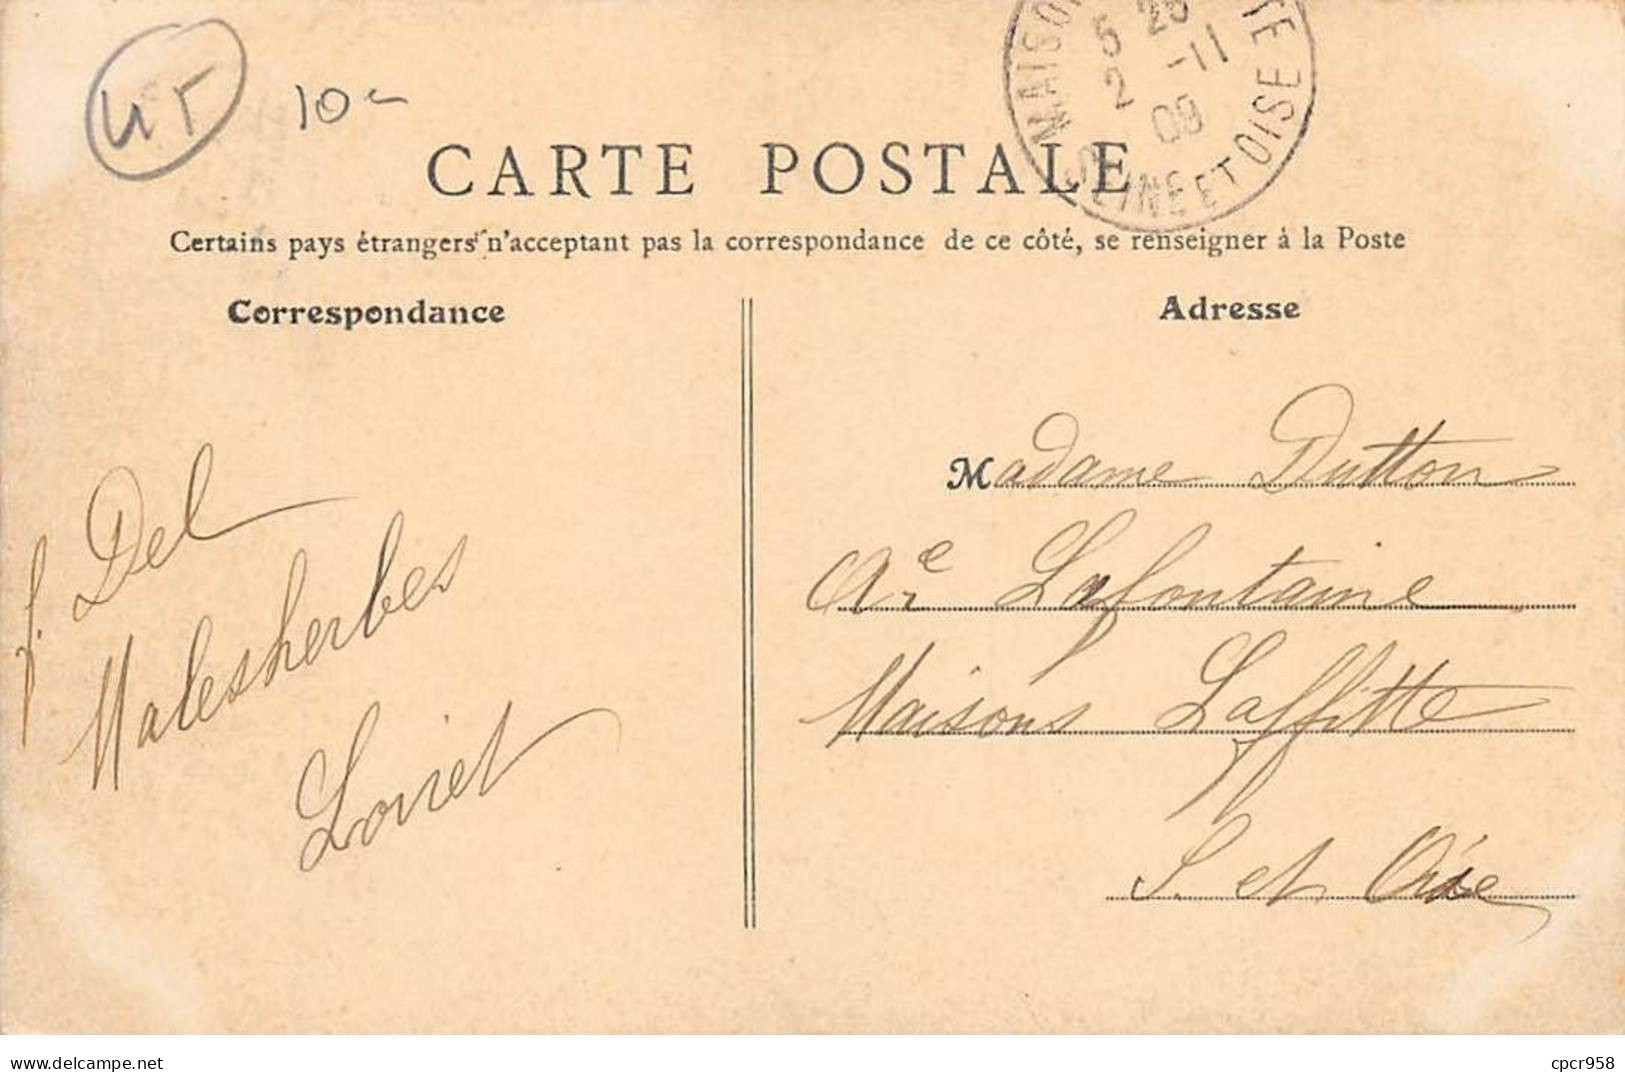 45
10
MAISO TE
5 25
2 -11
09
SEINE ET OISE
CARTE POSTALE
Certains pays étrangers n'acceptant pas la correspondance de ce côté, se renseigner à la Poste
Correspondance
Adresse
f. Del
Malesherbes
Loiret
Madame Dutton
Ae Lafontaine
Maisons Laffitte
S. et Oise
Delcampe.net
cpcr958